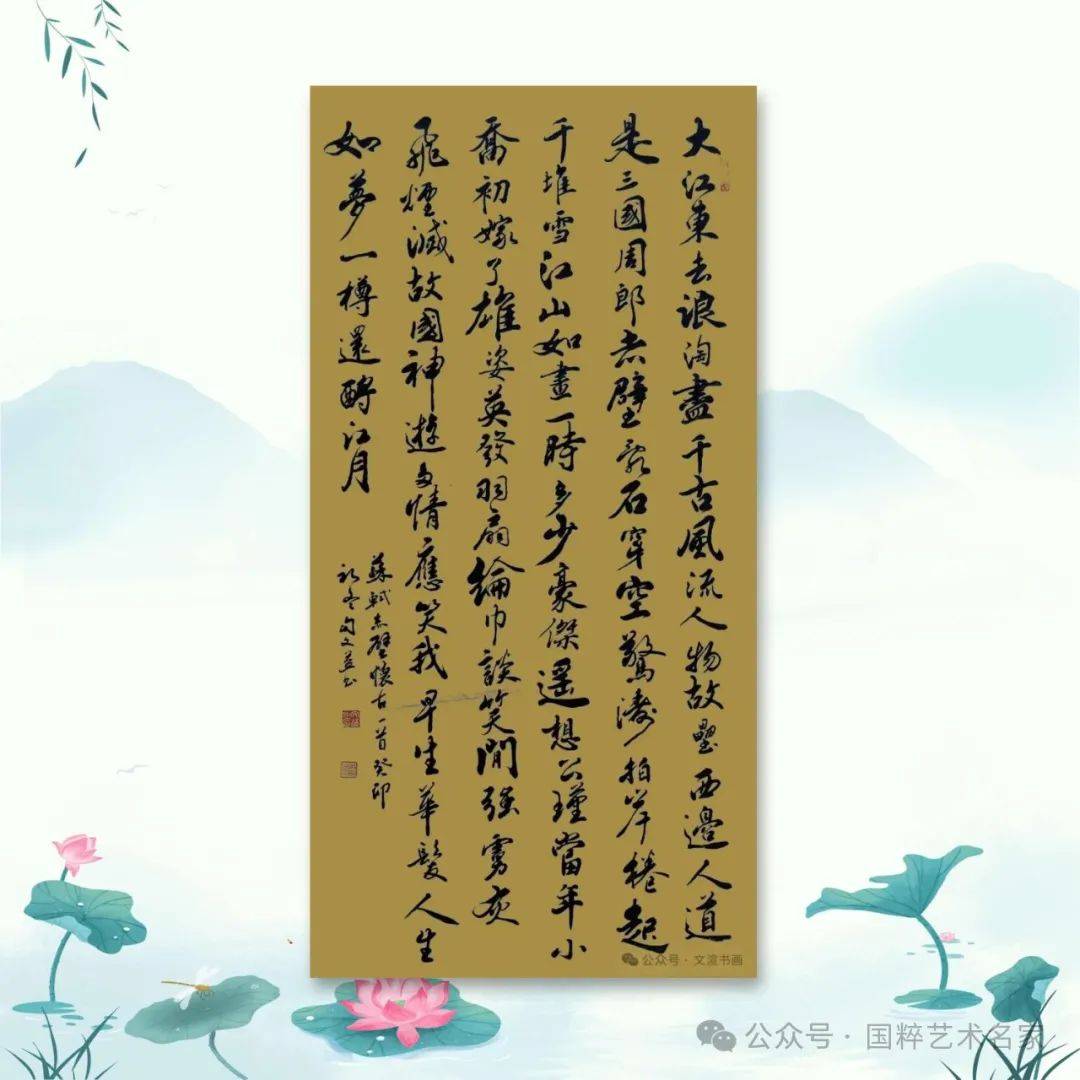 大江東去浪淘盡千古風流人物故壘西邊人道
是三國周郎赤壁亂石穿空驚濤拍岸捲起
千堆雪江山如畫一時多少豪傑遙想公瑾當年小
喬初嫁了雄姿英發羽扇綸巾談笑間強虜灰
飛煙滅故國神遊多情應笑我早生華髮人生
如夢一樽還酹江月
蘇軾赤壁懷古一首癸卯
公众号·文渲书画
公众号·国粹艺术名家